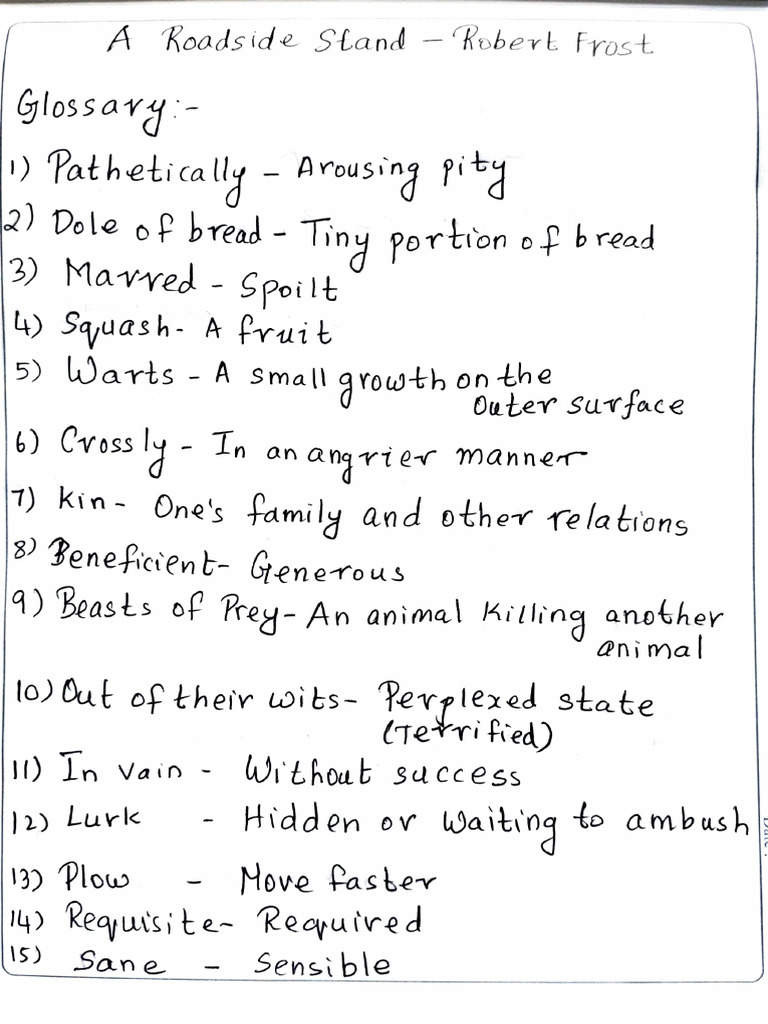 A Roadside Stand - Robert Frost
Glossary:-
1) Pathetically - Arousing pity
2) Dole of bread - Tiny portion of bread
3) Marred - Spoilt
4) Squash - A fruit
5) Warts - A small growth on the
outer surface
6) Crossly - In an angrier manner
7) Kin - One's family and other relations
8) Beneficient - Generous
9) Beasts of Prey - An animal killing another
animal
10) Out of their wits - Perplexed state
(Terrified)
11) In vain - Without success
12) Lurk - Hidden or Waiting to ambush
13) Plow - Move faster
14) Requisite - Required
15) Sane - Sensible